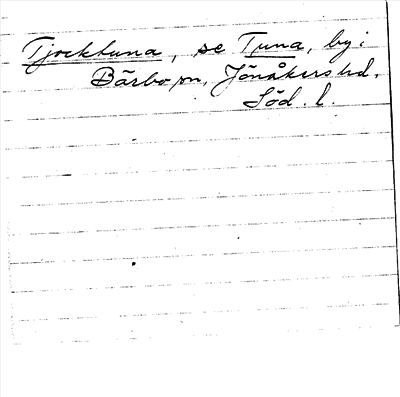 Tjocktuna, se Tuna, by i
Bärbo sn, Jönåkers hd,
Söd. l.